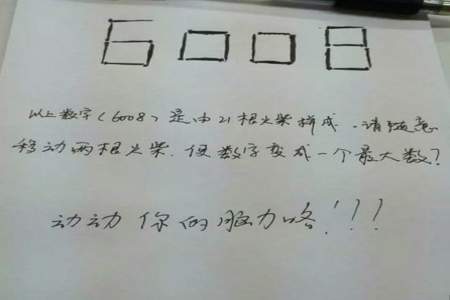 6008
以上数字(6008)是由21根火柴拼成.请随意
移动两根火柴.使数字变成一个最大数?
动动你的脑力咯!!!